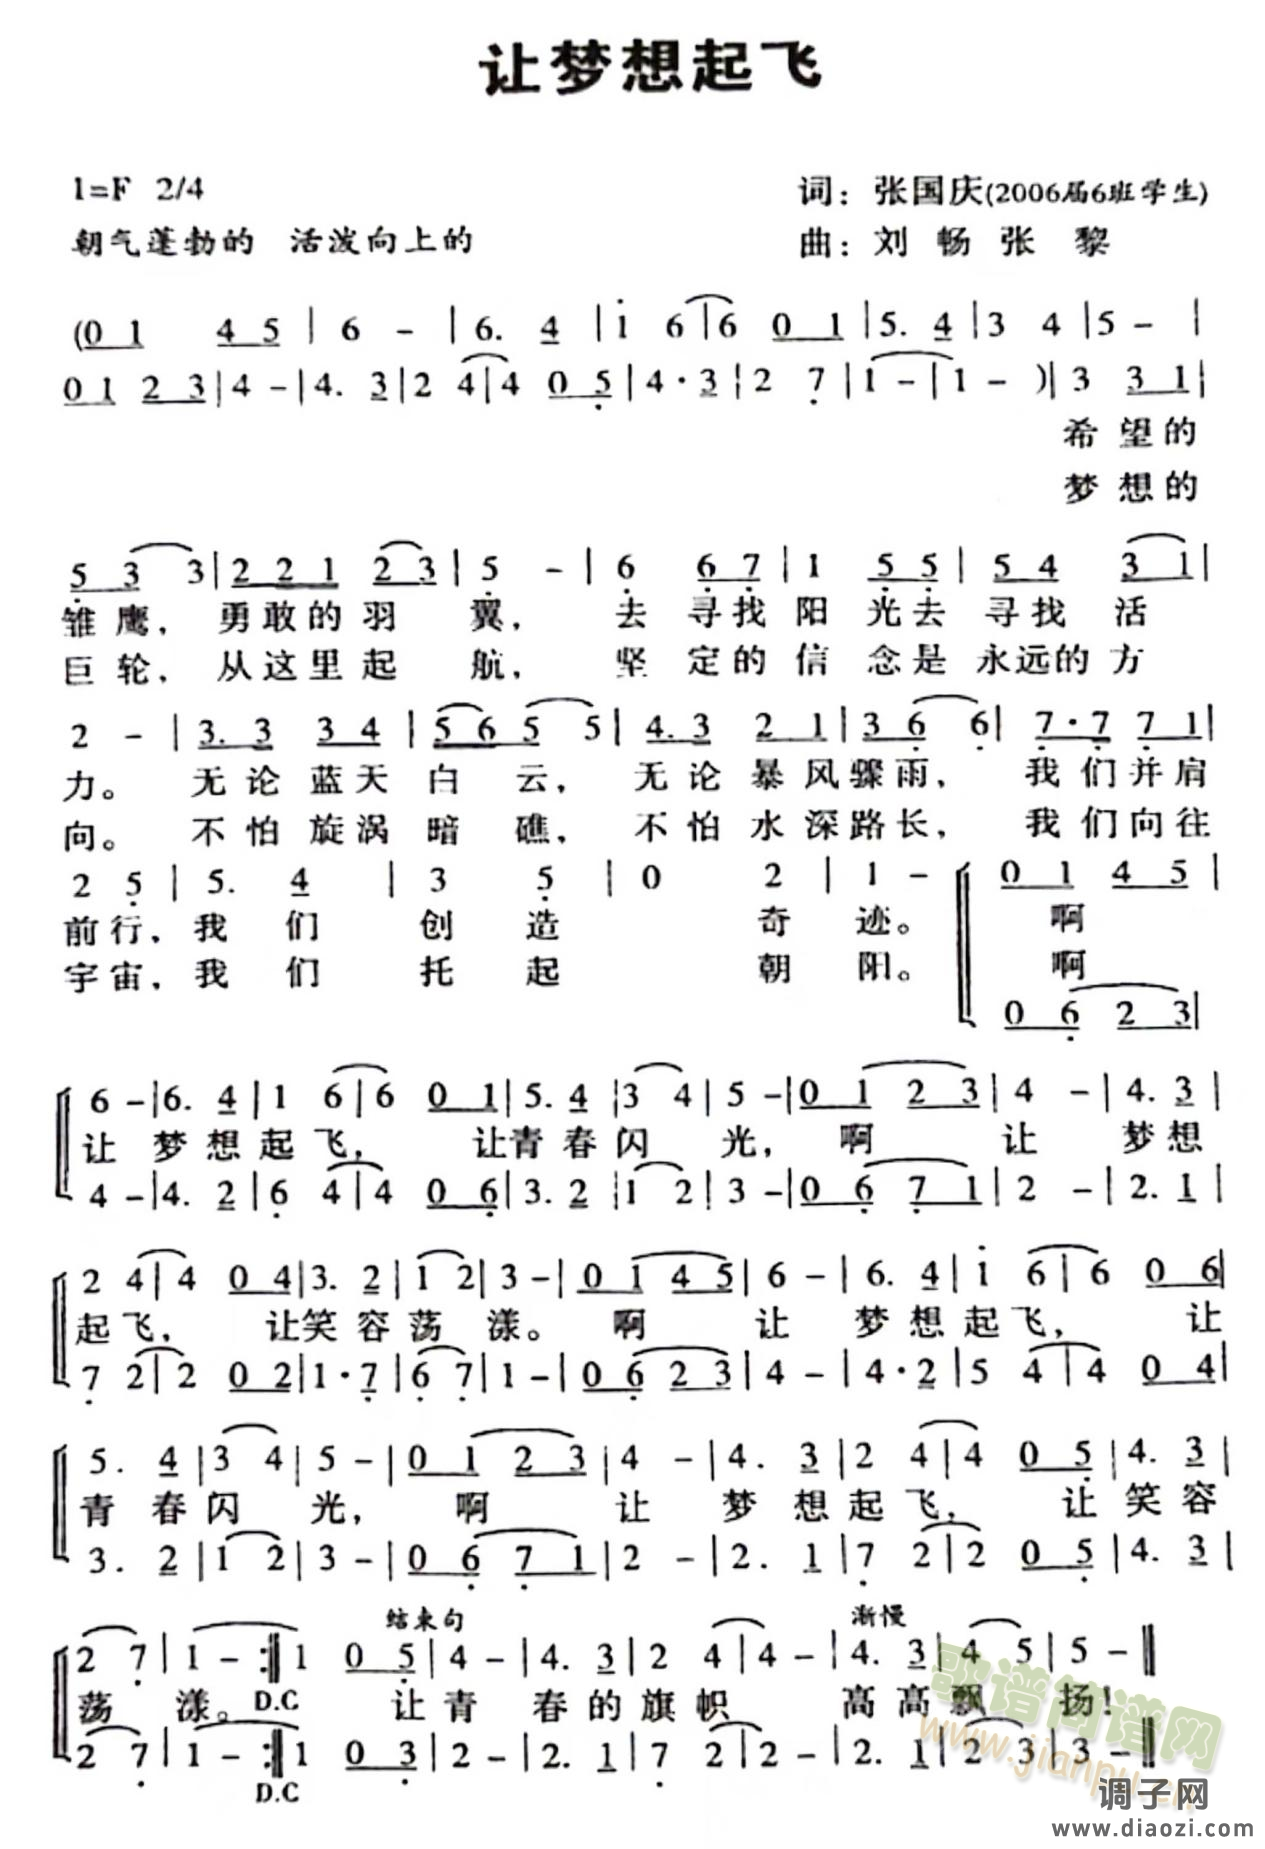 让梦想起飞
1=F 2/4
词：张国庆(2006届6班学生)
朝气蓬勃的 活泼向上的
曲：刘 畅 张 黎
(0 1 4 5 | 6 - | 6. 4 | i 6 | 6 0 1 | 5. 4 | 3 4 | 5 - |
0 1 2 3 | 4 - | 4. 3 | 2 4 | 4 0 5 | 4 · 3 | 2 7 | 1 - | 1 - ) | 3 3 1 |
希 望 的
梦 想 的
5 3 3 | 2 2 1 2 3 | 5 - | 6 6 7 | 1 5 5 | 5 4 3 1 |
雏 鹰， 勇 敢 的 羽 翼， 去 寻 找 阳 光 去 寻 找 活
巨 轮， 从 这 里 起 航， 坚 定 的 信 念 是 永 远 的 方
2 - | 3. 3 3 4 | 5 6 5 5 | 4. 3 2 1 | 3 6 6 | 7 · 7 7 1 |
力。 无 论 蓝 天 白 云， 无 论 暴 风 骤 雨， 我 们 并 肩
向。 不 怕 旋 涡 暗 礁， 不 怕 水 深 路 长， 我 们 向 往
2 5 | 5. 4 | 3 5 | 0 2 | 1 - 0 1 4 5 |
前 行， 我 们 创 造 奇 迹。 啊
宇 宙， 我 们 托 起 朝 阳。 啊
0 6 2 3 |
6 - | 6. 4 | 1 6 | 6 0 1 | 5. 4 | 3 4 | 5 - | 0 1 2 3 | 4 - | 4. 3 |
让 梦 想 起 飞， 让 青 春 闪 光， 啊 让 梦 想
4 - | 4. 2 | 6 4 | 4 0 6 | 3. 2 | 1 2 | 3 - | 0 6 7 1 | 2 - | 2. 1 |
2 4 | 4 0 4 | 3. 2 | 1 2 | 3 - | 0 1 4 5 | 6 - | 6. 4 | i 6 | 6 0 6 |
起 飞， 让 笑 容 荡 漾。 啊 让 梦 想 起 飞， 让
7 2 | 2 0 2 | 1 · 7 | 6 7 | 1 - | 0 6 2 3 | 4 - | 4 · 2 | 5 4 | 4 0 4 |
5. 4 | 3 4 | 5 - | 0 1 2 3 | 4 - | 4. 3 | 2 4 | 4 0 5 | 4. 3 |
青 春 闪 光， 啊 让 梦 想 起 飞， 让 笑 容
3. 2 | 1 2 | 3 - | 0 6 7 1 | 2 - | 2. 1 | 7 2 | 2 0 5 | 4. 3 |
结束句 渐慢
2 7 | 1 - :‖ 1 0 5 | 4 - | 4. 3 | 2 4 | 4 - | 4. 3 | 4 5 | 5 - ‖
荡 漾。 D.C 让 青 春 的 旗 帜 高 高 飘 扬！
2 7 | 1 - :‖ 1 0 3 | 2 - | 2. 1 | 7 2 | 2 - | 2. 1 | 2 3 | 3 - ‖
D.C
歌谱简谱网
www.jianpu.cn
调子网
www.diaozi.com